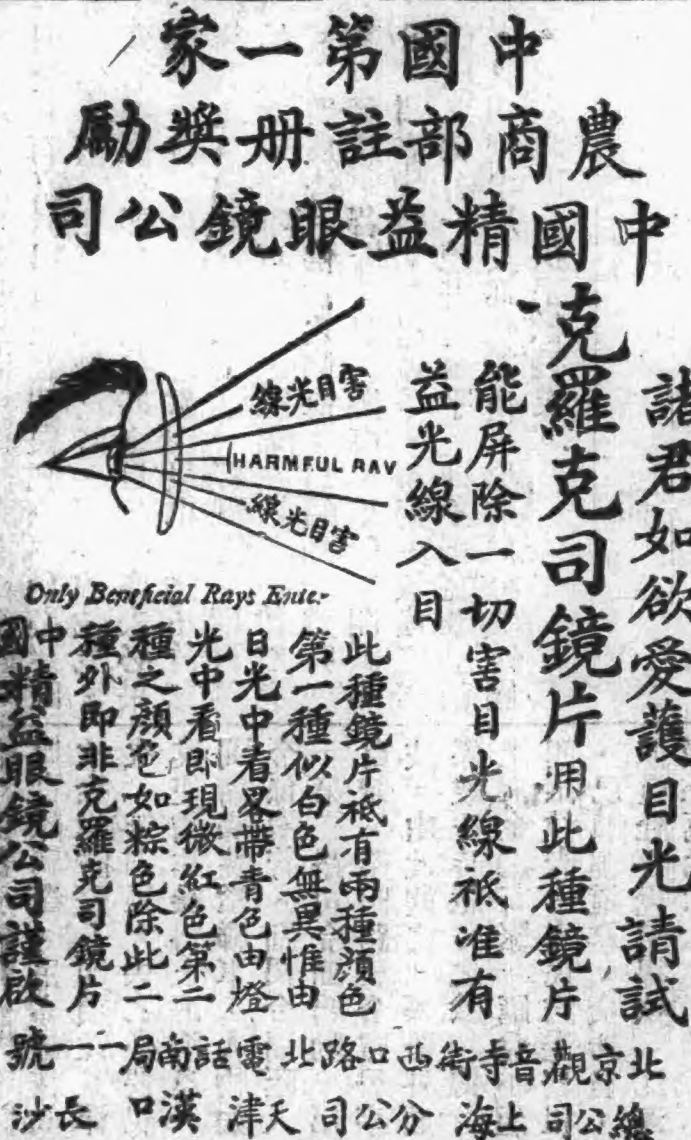 中國第一家
農商部註册獎勵
中國精益眼鏡公司
諸君如欲愛護目光請試
克羅克司鏡片用此種鏡片
能屏除一切害目光線祗准有
益光線入目
害目光線
HARMFUL RAY
害目光線
Only Beneficial Rays Enter
此種鏡片祗有兩種顏色
第一種似白色無異惟由
日光中看畧帶青色由燈
光中看即現微紅色第二
種之顏色如粽色除此二
種外即非克羅克司鏡片
中國精益眼鏡公司謹啟
北京觀音寺街西口路北電話南局一一號
總公司上海分公司天津漢口長沙